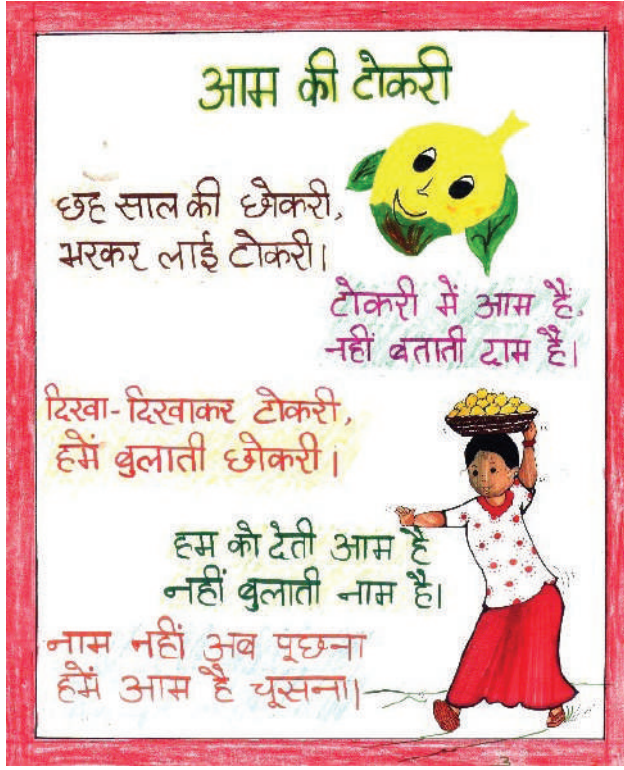 आम की टोकरी
छह साल की छोकरी,
भरकर लाई टोकरी।
टोकरी में आम हैं,
नहीं बताती दाम है।
दिखा-दिखाकर टोकरी,
हमें बुलाती छोकरी।
हम को देती आम है
नहीं बुलाती नाम है।
नाम नहीं अब पूछना
हमें आम है चूसना।
3